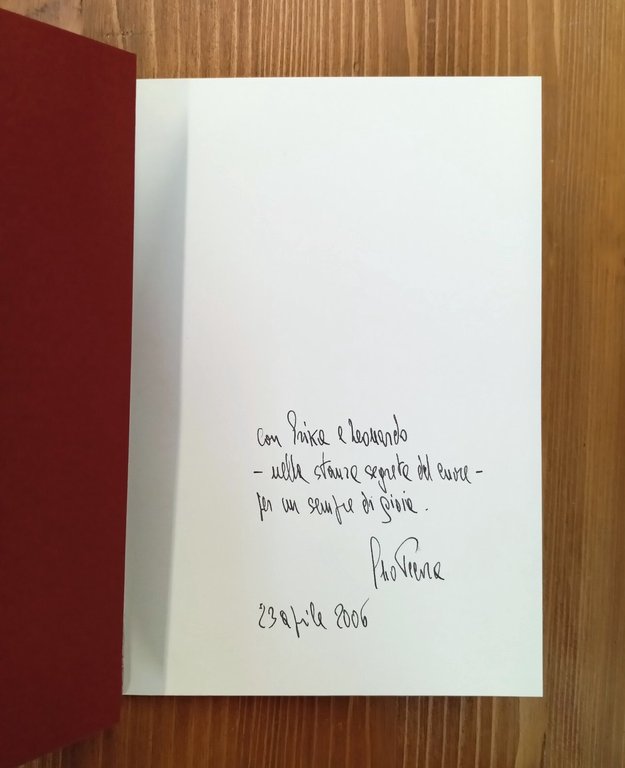 con Erika e Leonardo
- nella stanza segreta del cuore -
per un sempre di gioia.
23 aprile 2006